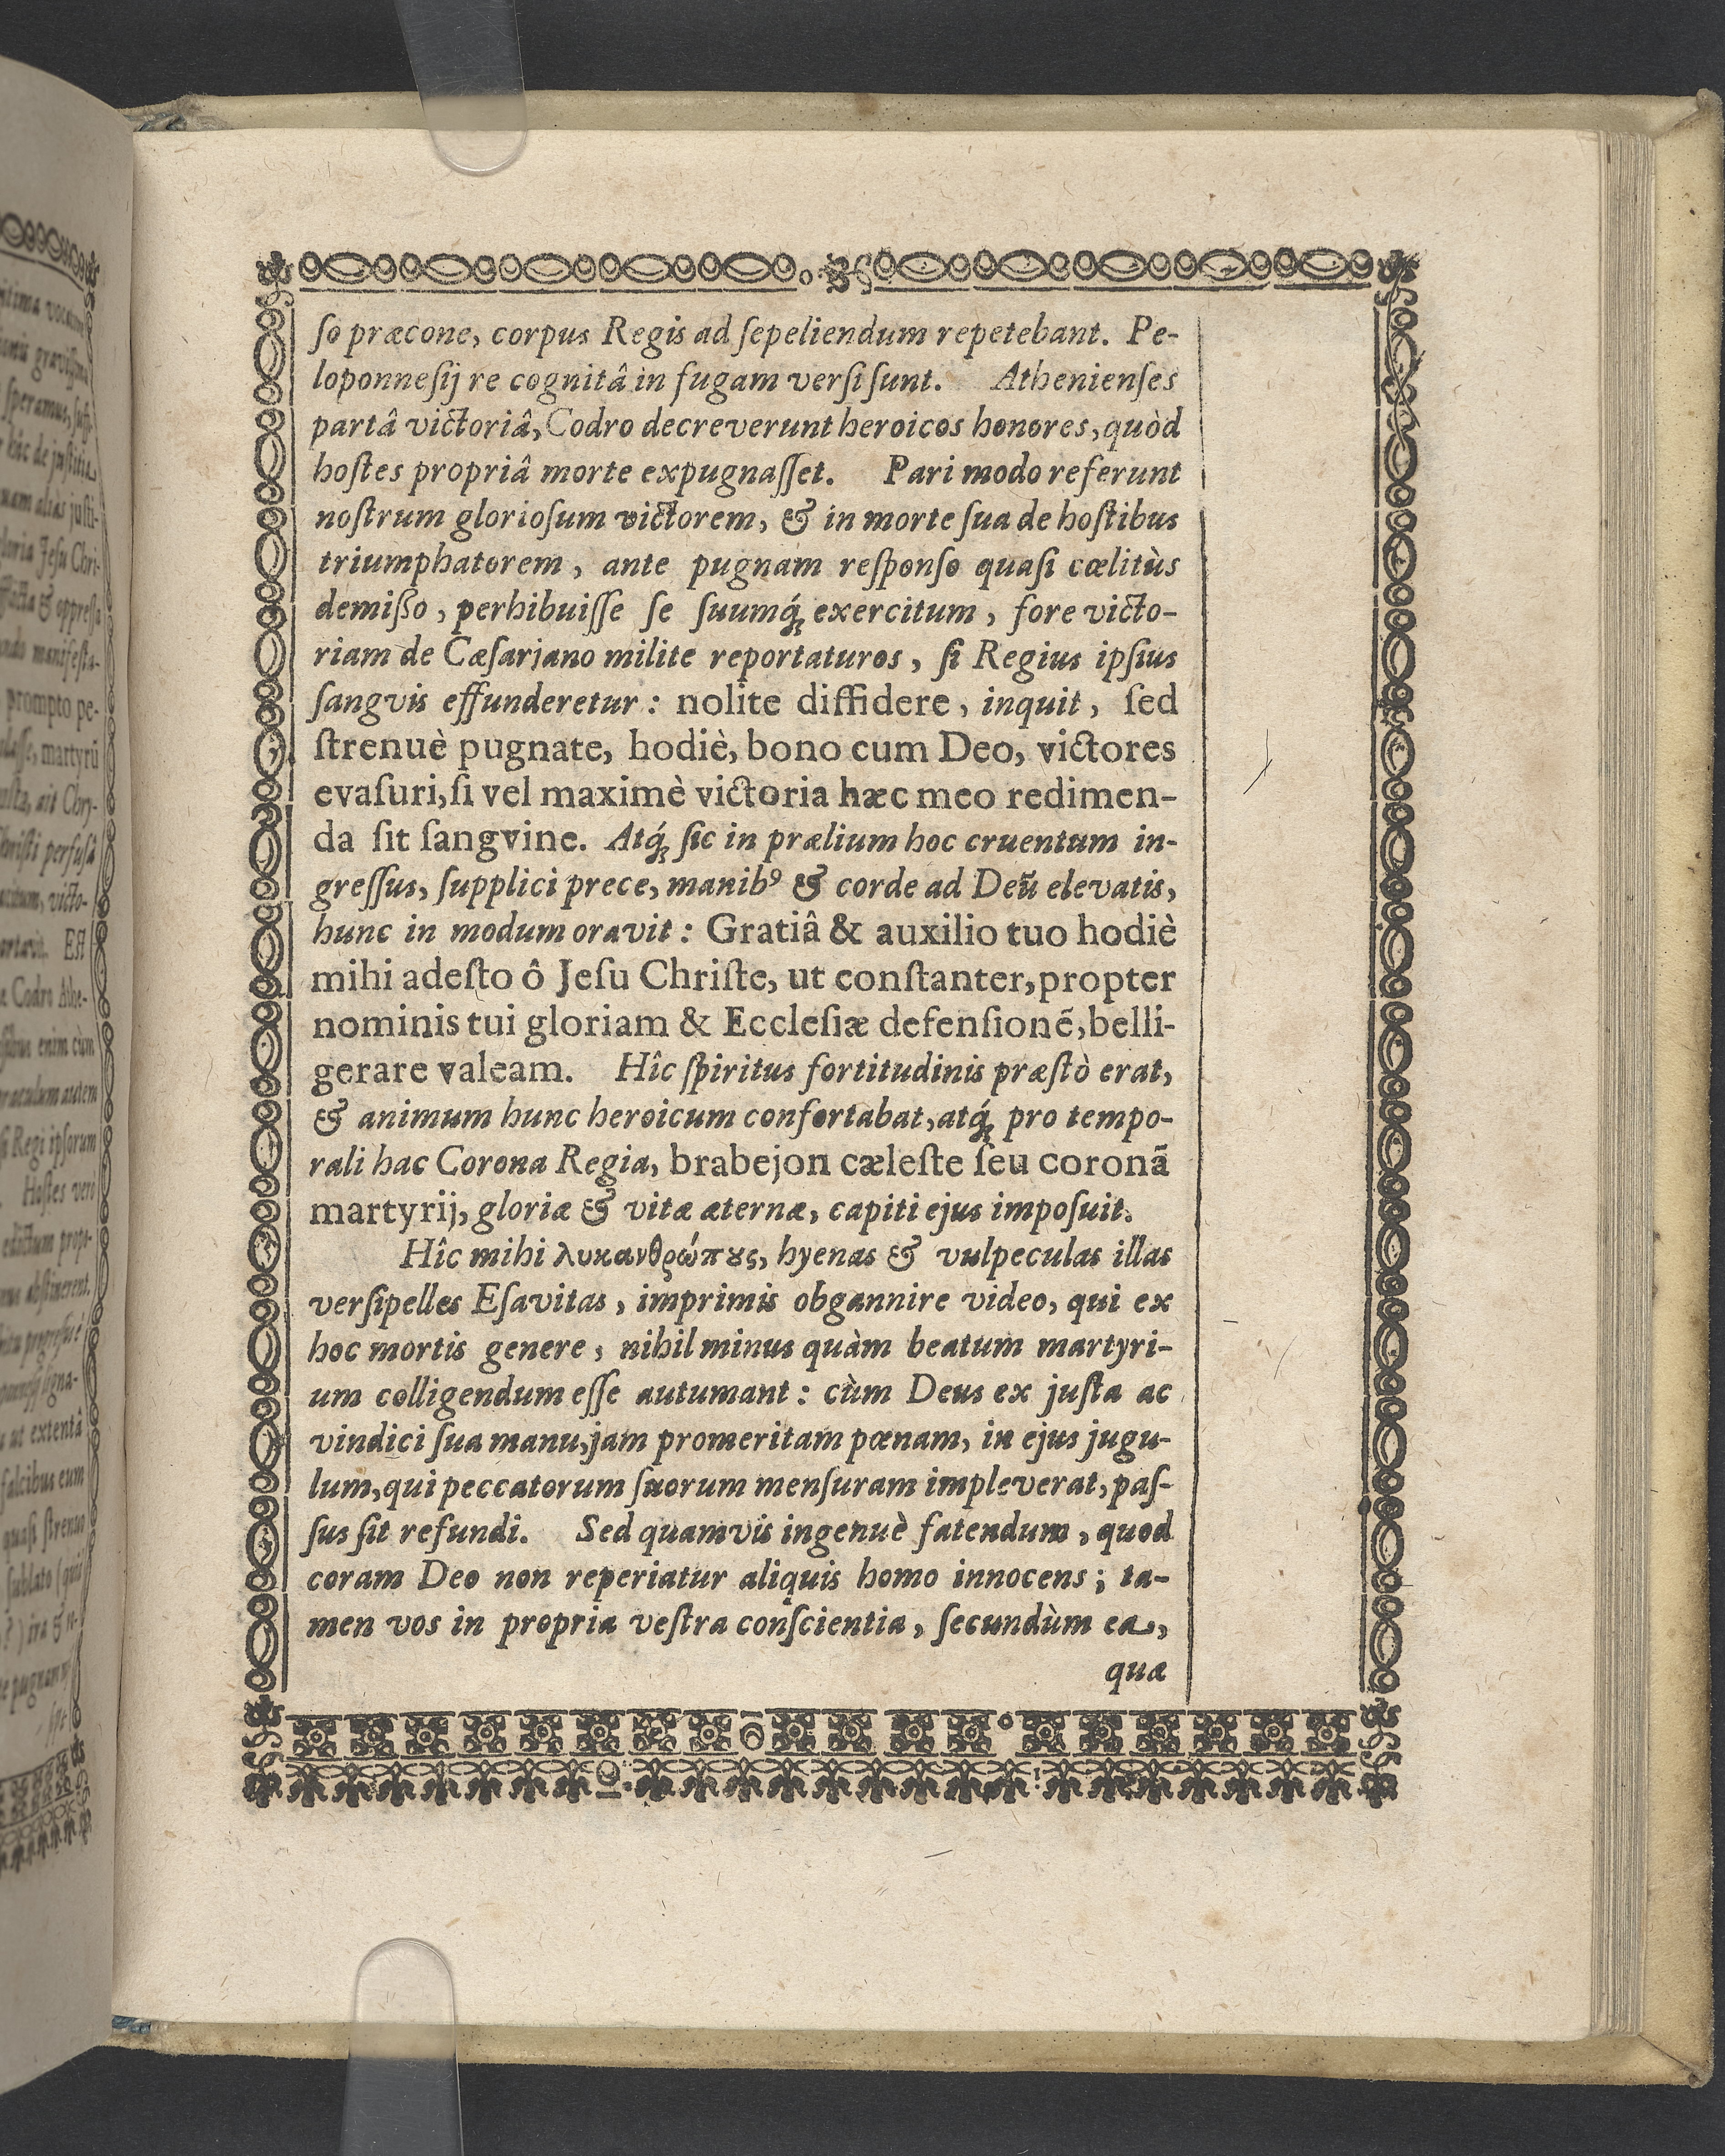 ſo præcone, corpus Regis ad ſepeliendum repetebant. Pe-
loponneſij re cognitâ in fugam verſi ſunt. Athenienſes
partâ victoriâ, Codro decreverunt heroicos honores, quòd
hoſtes propriâ morte expugnaſſet. Pari modo referunt
noſtrum glorioſum victorem, & in morte ſua de hoſtibus
triumphatorem, ante pugnam reſponſo quaſi cœlitùs
demiſſo, perhibuiſſe ſe ſuumq́ꝫ exercitum, fore victo-
riam de Cæſariano milite reportaturos, ſi Regius ipſius
ſangvis effunderetur: nolite diffidere, inquit, ſed
ſtrenuè pugnate, hodiè, bono cum Deo, victores
evaſuri, ſi vel maximè victoria hæc meo redimen-
da ſit ſangvine. Atq́ꝫ ſic in prælium hoc cruentum in-
greſſus, ſupplici prece, manibꝰ & corde ad Deũ elevatis,
hunc in modum oravit: Gratiâ & auxilio tuo hodiè
mihi adeſto ô Jeſu Chriſte, ut conſtanter, propter
nominis tui gloriam & Eccleſiæ defenſionẽ, belli-
gerare valeam. Hîc ſpiritus fortitudinis præſtò erat,
& animum hunc heroicum confortabat, atq́ꝫ pro tempo-
rali hac Corona Regia, brabejon cæleſte ſeu coronã
martyrij, gloriæ & vitæ æternæ, capiti ejus impoſuit.
Hîc mihi λυκανθρώπȣς, hyenas & vulpeculas illas
verſipelles Eſavitas, imprimis obgannire video, qui ex
hoc mortis genere, nihil minus quàm beatum martyri-
um colligendum eſſe autumant: cùm Deus ex juſta ac
vindici ſua manu, jam promeritam pœnam, in ejus jugu-
lum, qui peccatorum ſuorum menſuram impleverat, paſ-
ſus ſit refundi. Sed quamvis ingenuè fatendum, quod
coram Deo non reperiatur aliquis homo innocens; ta-
men vos in propria veſtra conſcientia, ſecundùm ea,
quæ